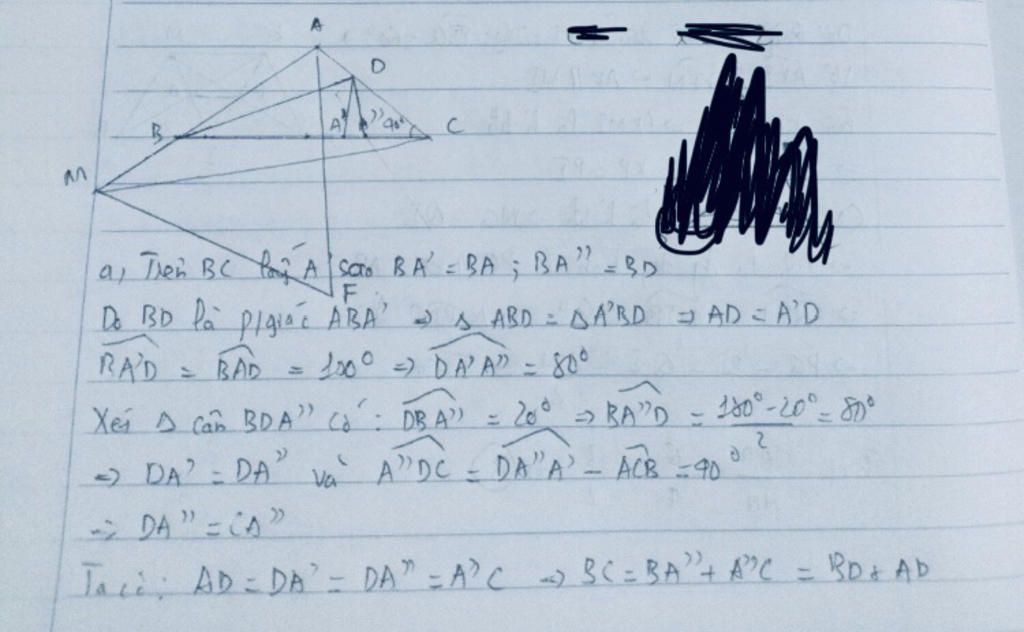 A
D
B
A'
A''
40°
C
M
F
a, Trên BC lấy A' sao BA' = BA ; BA'' = BD
Do BD là p/giác ABA' => Δ ABD = ΔA'BD => AD = A'D
BA'D = BAD = 100° => DA'A'' = 80°
Xét Δ cân BDA'' có : DBA'' = 20° => BA''D = 180° - 20° / 2 = 80°
=> DA' = DA'' và A''DC = DA''A' - ACB = 40°
=> DA'' = CA''
Ta có : AD = DA' = DA'' = A''C => BC = BA'' + A''C = BD + AD